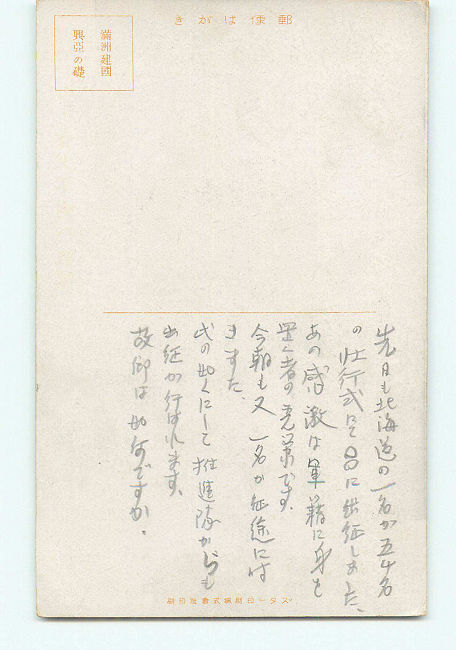 郵便はがき
滿洲建國
興亞の礎
先日も北海道の一名が五十名
の壮行式にて〇〇に出征しました、
あの感激は軍籍に身を
置く者の光栄です。
今朝も又一名が征途に付
きました
此の如くにして推進隊からも
出征が行はれます。
故郷は如何ですか。
スター印刷株式會社印刷